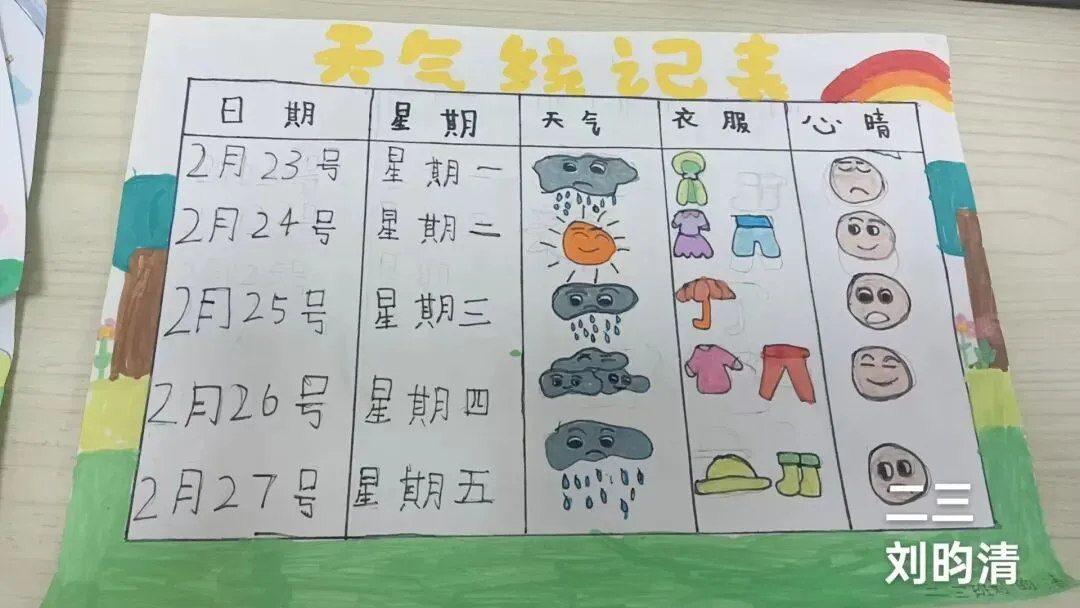 天气统记表
日期 星期 天气 衣服 心晴
2月23号 星期一
2月24号 星期二
2月25号 星期三
2月26号 星期四
2月27号 星期五
二三
刘昀清